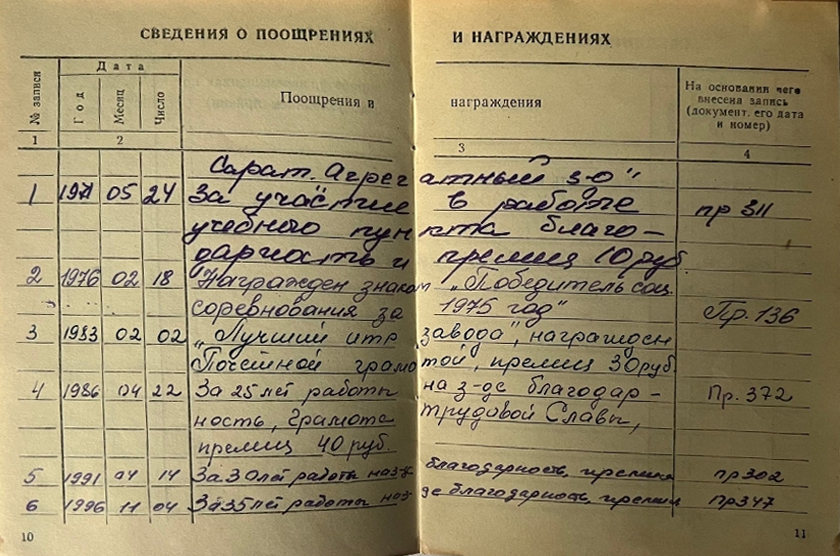 СВЕДЕНИЯ О ПООЩРЕНИЯХ И НАГРАЖДЕНИЯХ
№ записи Дата Поощрения и награждения На основании чего внесена запись (документ, его дата и номер)
Год Месяц Число
1 2 3 4
Сарат. Агрегатный з-д"
1 1971 05 24 За участие в работе пр 311
учебного пункта благо-
дарность и премия 10 руб.
2 1976 02 18 Награжден знаком „Победитель соц.
соревнования за 1975 год" Пр. 136
3 1983 02 02 „Лучший итр завода", награжден
Почетной грамотой, премия 30 руб
4 1986 04 22 За 25 лет работы на з-де благодар- Пр. 372
ность, грамота трудовой Славы,
премия 40 руб.
5 1991 04 14 За 30 лет работы на з-де благодарность, премия пр 302
6 1996 11 04 За 35 лет работы на з-де благодарность, премия пр 347
10 11